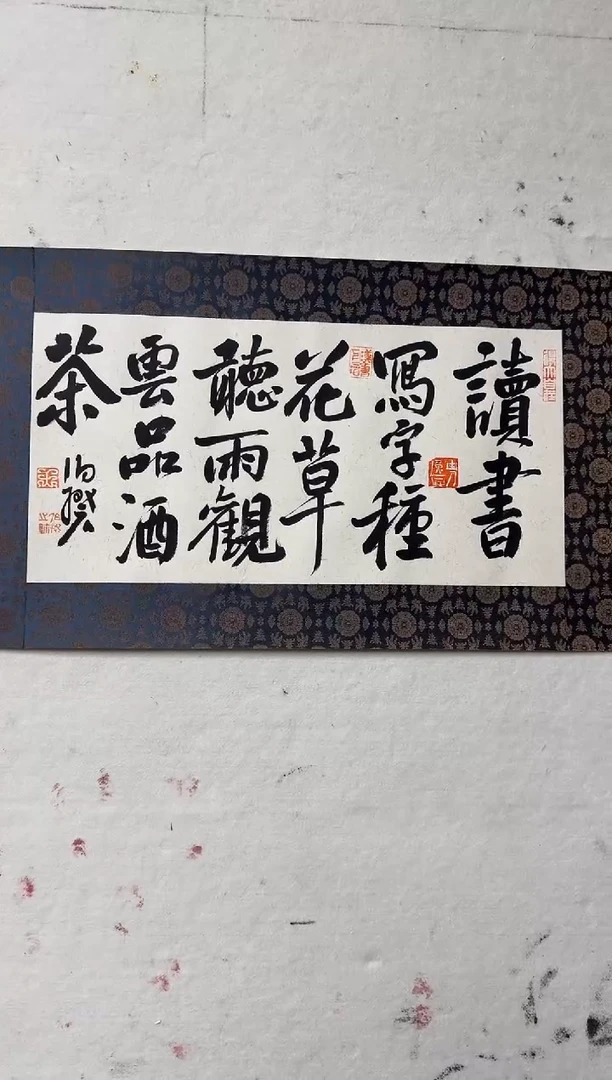 讀書
寫字種
花草
聽雨觀
雲品酒
茶